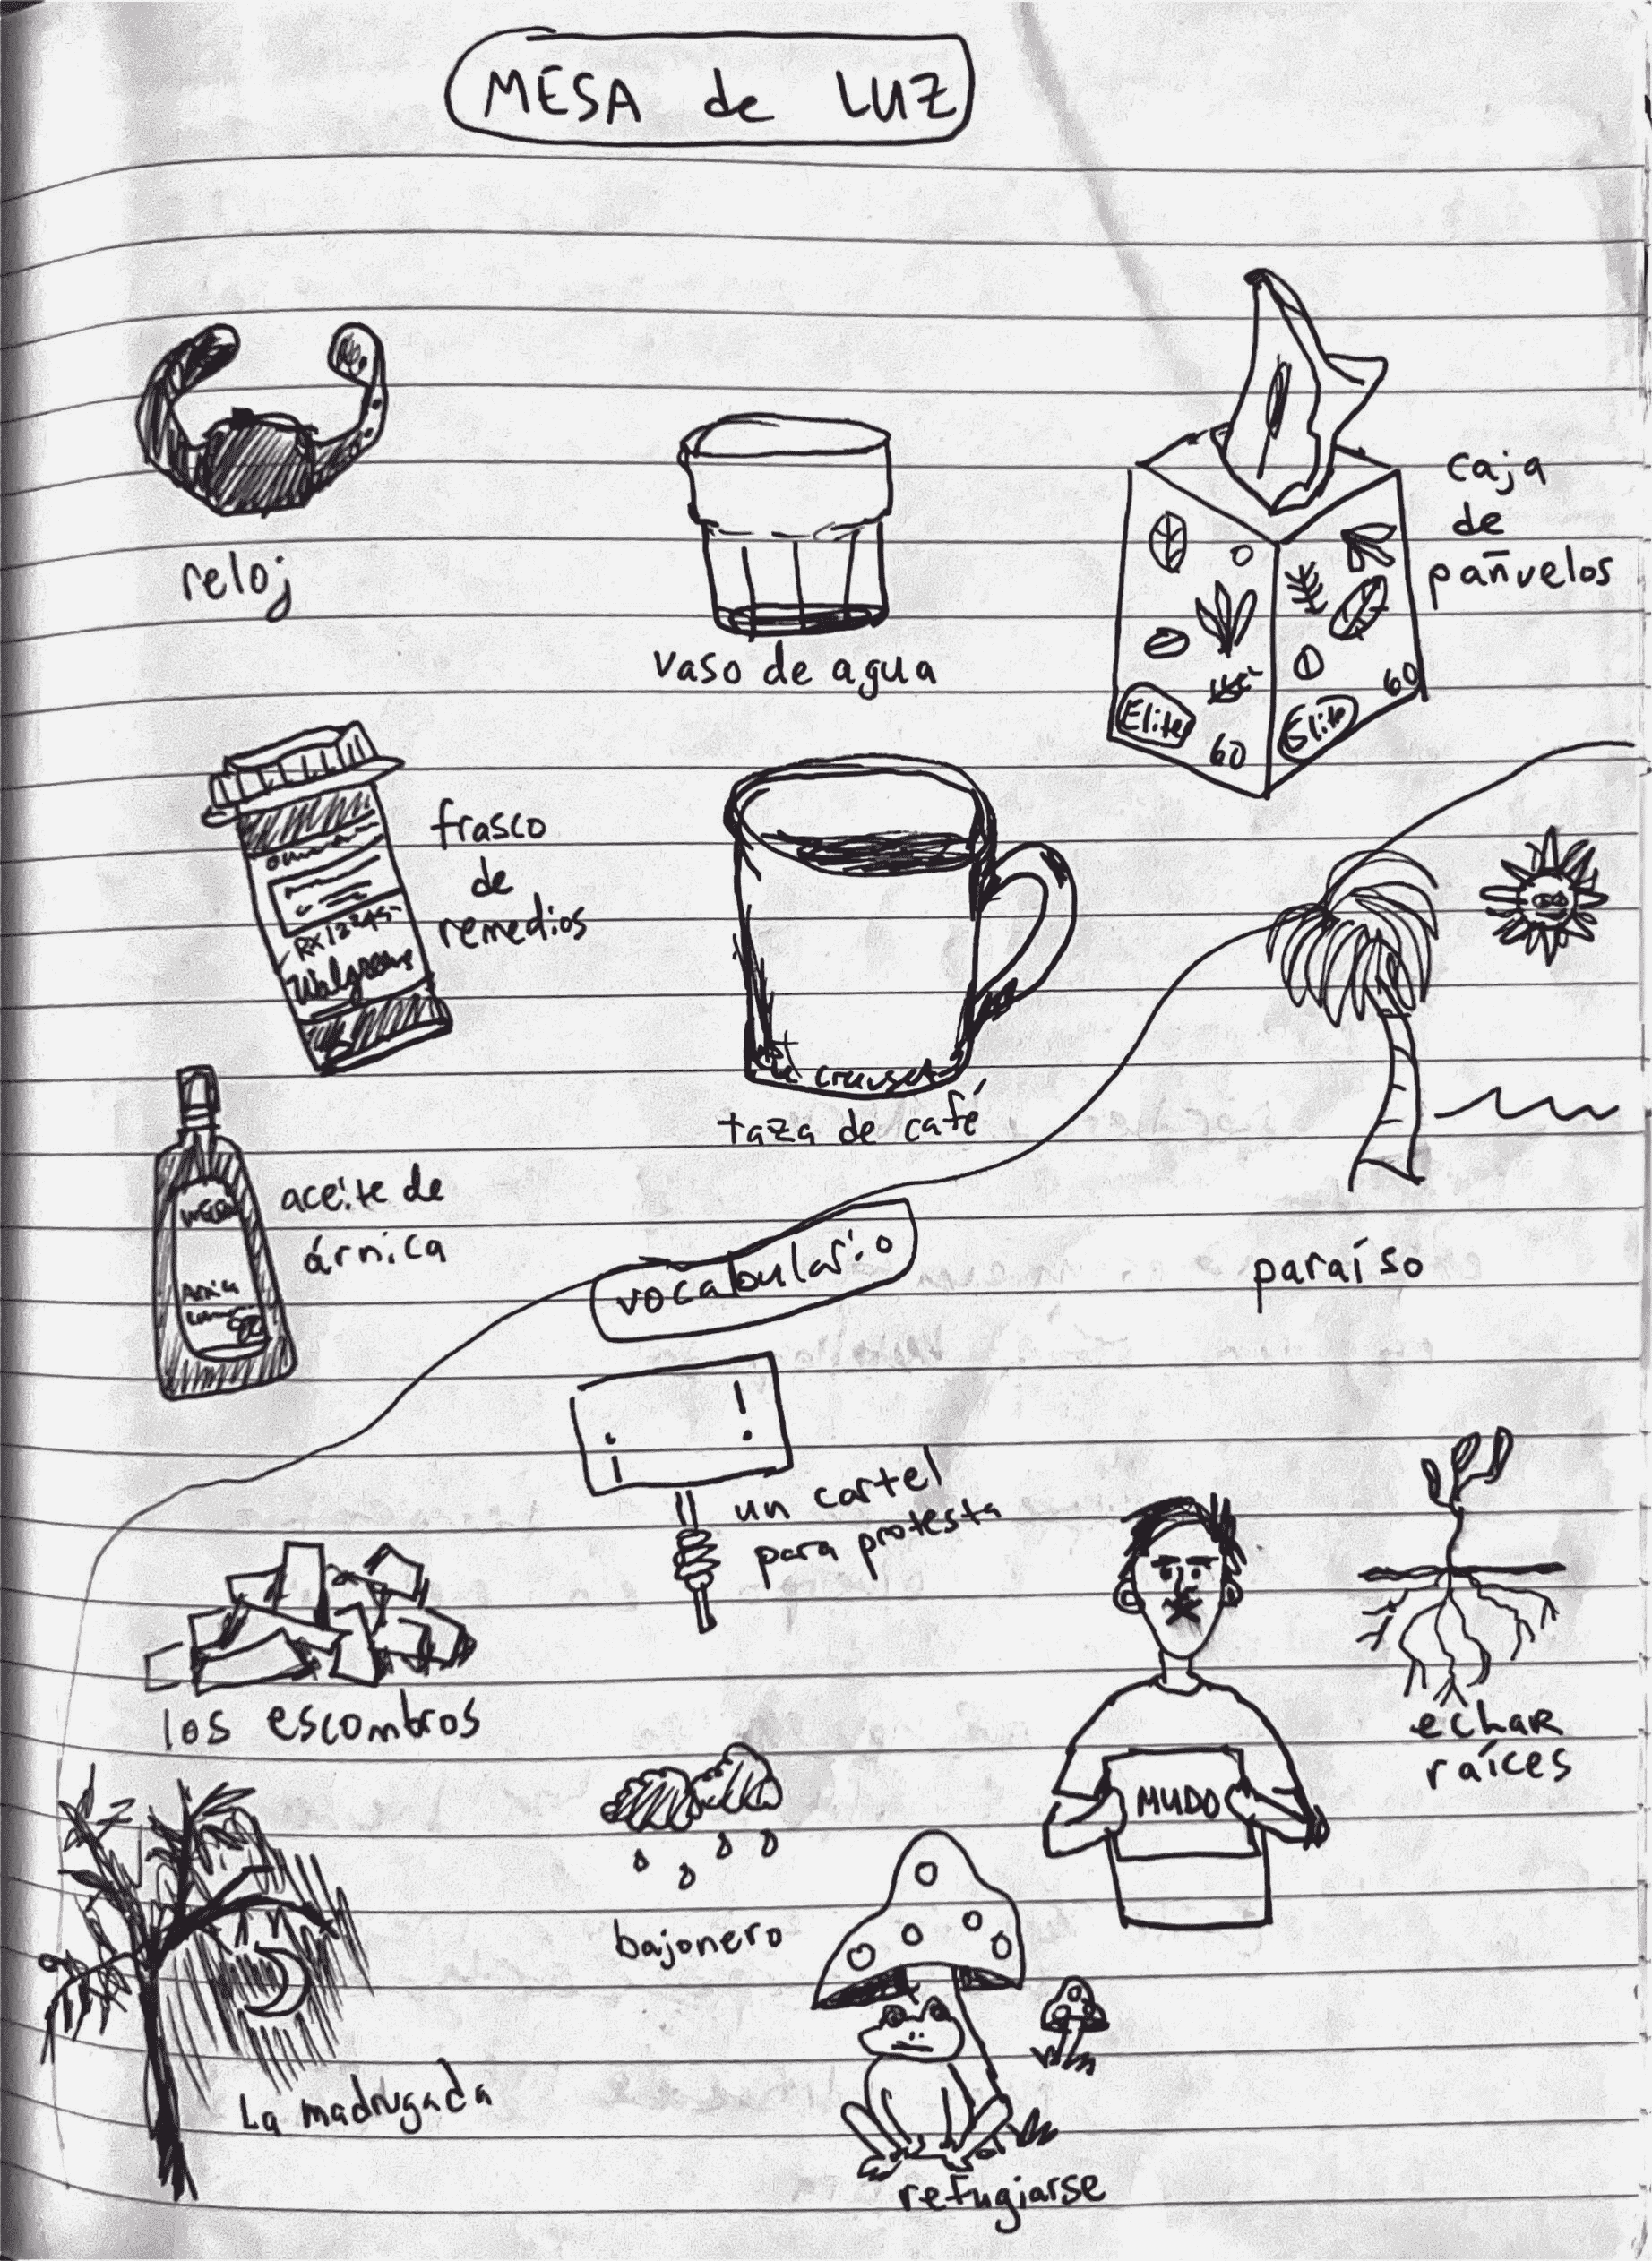 MESA de LUZ
reloj
vaso de agua
caja
de
pañuelos
Elite
60
Elite
60
frasco
de
remedios
RX12345
Walgreens
taza de café
aceite de
árnica
paraíso
vocabulario
¡ !
un cartel
para protesta
los escombros
echar
raíces
MUDO
bajonero
La madrugada
refugiarse